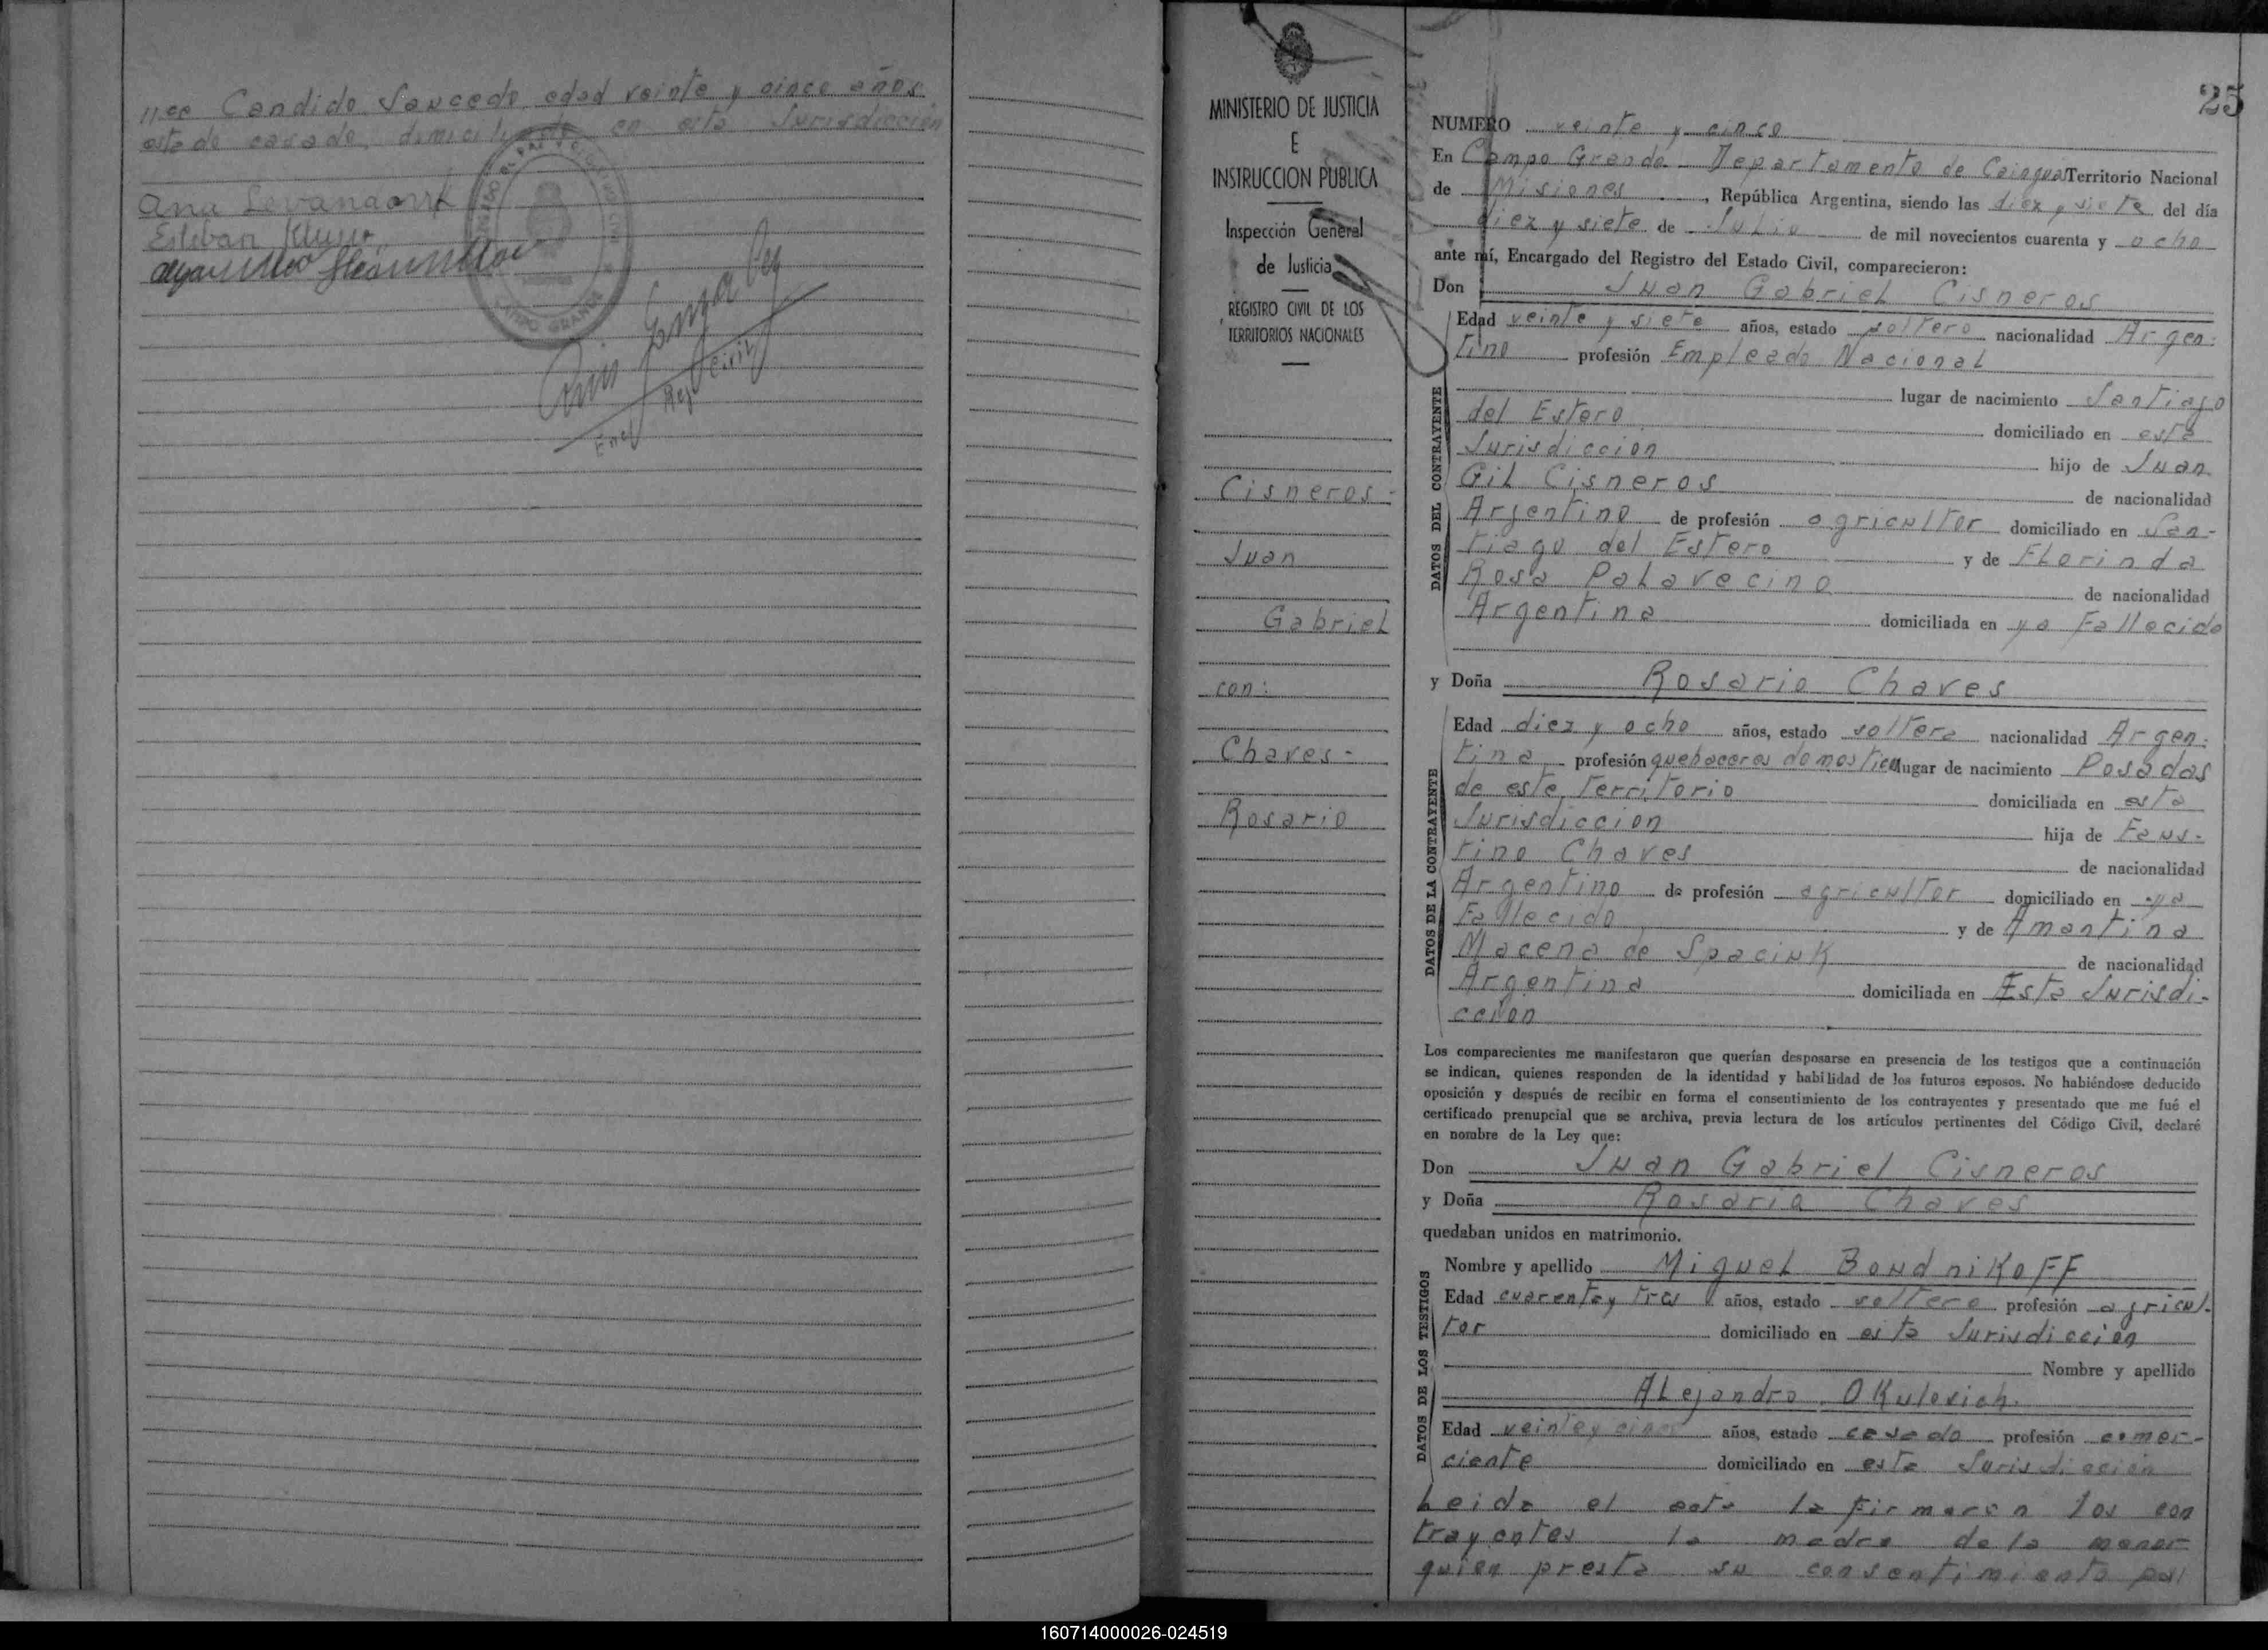 Candido Saucedo edad veinte y cinco años
estado casado, domiciliado en esta Jurisdiccion
Ana
Esteban
CAMPO GRANDE
Enc Reg Civil
MINISTERIO DE JUSTICIA
E
INSTRUCCION PUBLICA
Inspección General
de Justicia
REGISTRO CIVIL DE LOS
TERRITORIOS NACIONALES
Cisneros-
Juan
Gabriel
con:
Chaves-
Rosario
25
NUMERO veinte y cinco
En Campo Grande Departamento de Cainguas Territorio Nacional
de Misiones, República Argentina, siendo las diez y siete del día
diez y siete de Julio de mil novecientos cuarenta y ocho
ante mí, Encargado del Registro del Estado Civil, comparecieron:
Don Juan Gabriel Cisneros
DATOS DEL CONTRAYENTE
Edad veinte y siete años, estado soltero nacionalidad Argen-
tino profesión Empleado Nacional
lugar de nacimiento Santiago
del Estero domiciliado en esta
Jurisdiccion hijo de Juan
Gil Cisneros de nacionalidad
Argentino de profesión agricultor domiciliado en San-
tiago del Estero y de Florinda
Rosa Palavecino de nacionalidad
Argentina domiciliada en ya Fallecida
y Doña Rosario Chaves
DATOS DE LA CONTRAYENTE
Edad diez y ocho años, estado soltera nacionalidad Argen-
tina profesión quehaceres domesticos lugar de nacimiento Posadas
de este Territorio domiciliada en esta
Jurisdiccion hija de Faus-
tino Chaves de nacionalidad
Argentino de profesión agricultor domiciliado en ya
Fallecido y de Amantina
Macena de Spaciuk de nacionalidad
Argentina domiciliada en Esta Jurisdi-
ccion
Los comparecientes me manifestaron que querían desposarse en presencia de los testigos que a continuación
se indican, quienes responden de la identidad y habilidad de los futuros esposos. No habiéndose deducido
oposición y después de recibir en forma el consentimiento de los contrayentes y presentado que me fué el
certificado prenupcial que se archiva, previa lectura de los artículos pertinentes del Código Civil, declaré
en nombre de la Ley que:
Don Juan Gabriel Cisneros
y Doña Rosario Chaves
quedaban unidos en matrimonio.
DATOS DE LOS TESTIGOS
Nombre y apellido Miguel Boudnikoff
Edad cuarenta y tres años, estado soltero profesión agricul-
tor domiciliado en esta Jurisdiccion
Nombre y apellido
Alejandro Okulovich.
Edad veinte y cinco años, estado casado profesión comer-
ciante domiciliado en esta Jurisdiccion
Leida el acta la firmaron los con
trayentes la madre de la menor
quien presta su consentimiento por
160714000026-024519